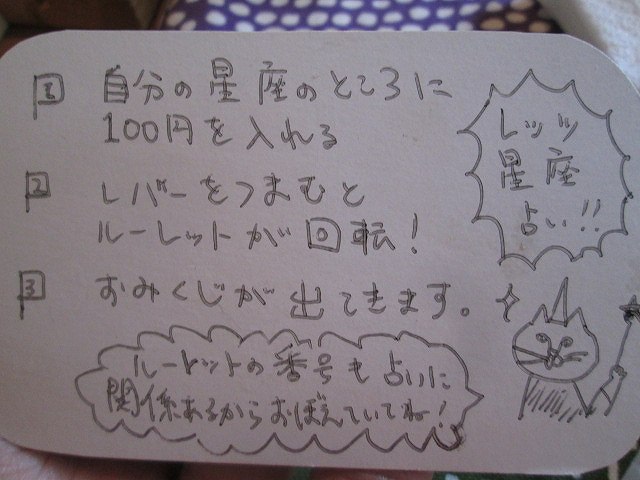 1 自分の星座のところに
100円を入れる
2 レバーをつまむと
ルーレットが回転!
3 おみくじが出てきます。
ルーレットの番号も占いに
関係あるからおぼえていてね!
レッツ
星座
占い!!